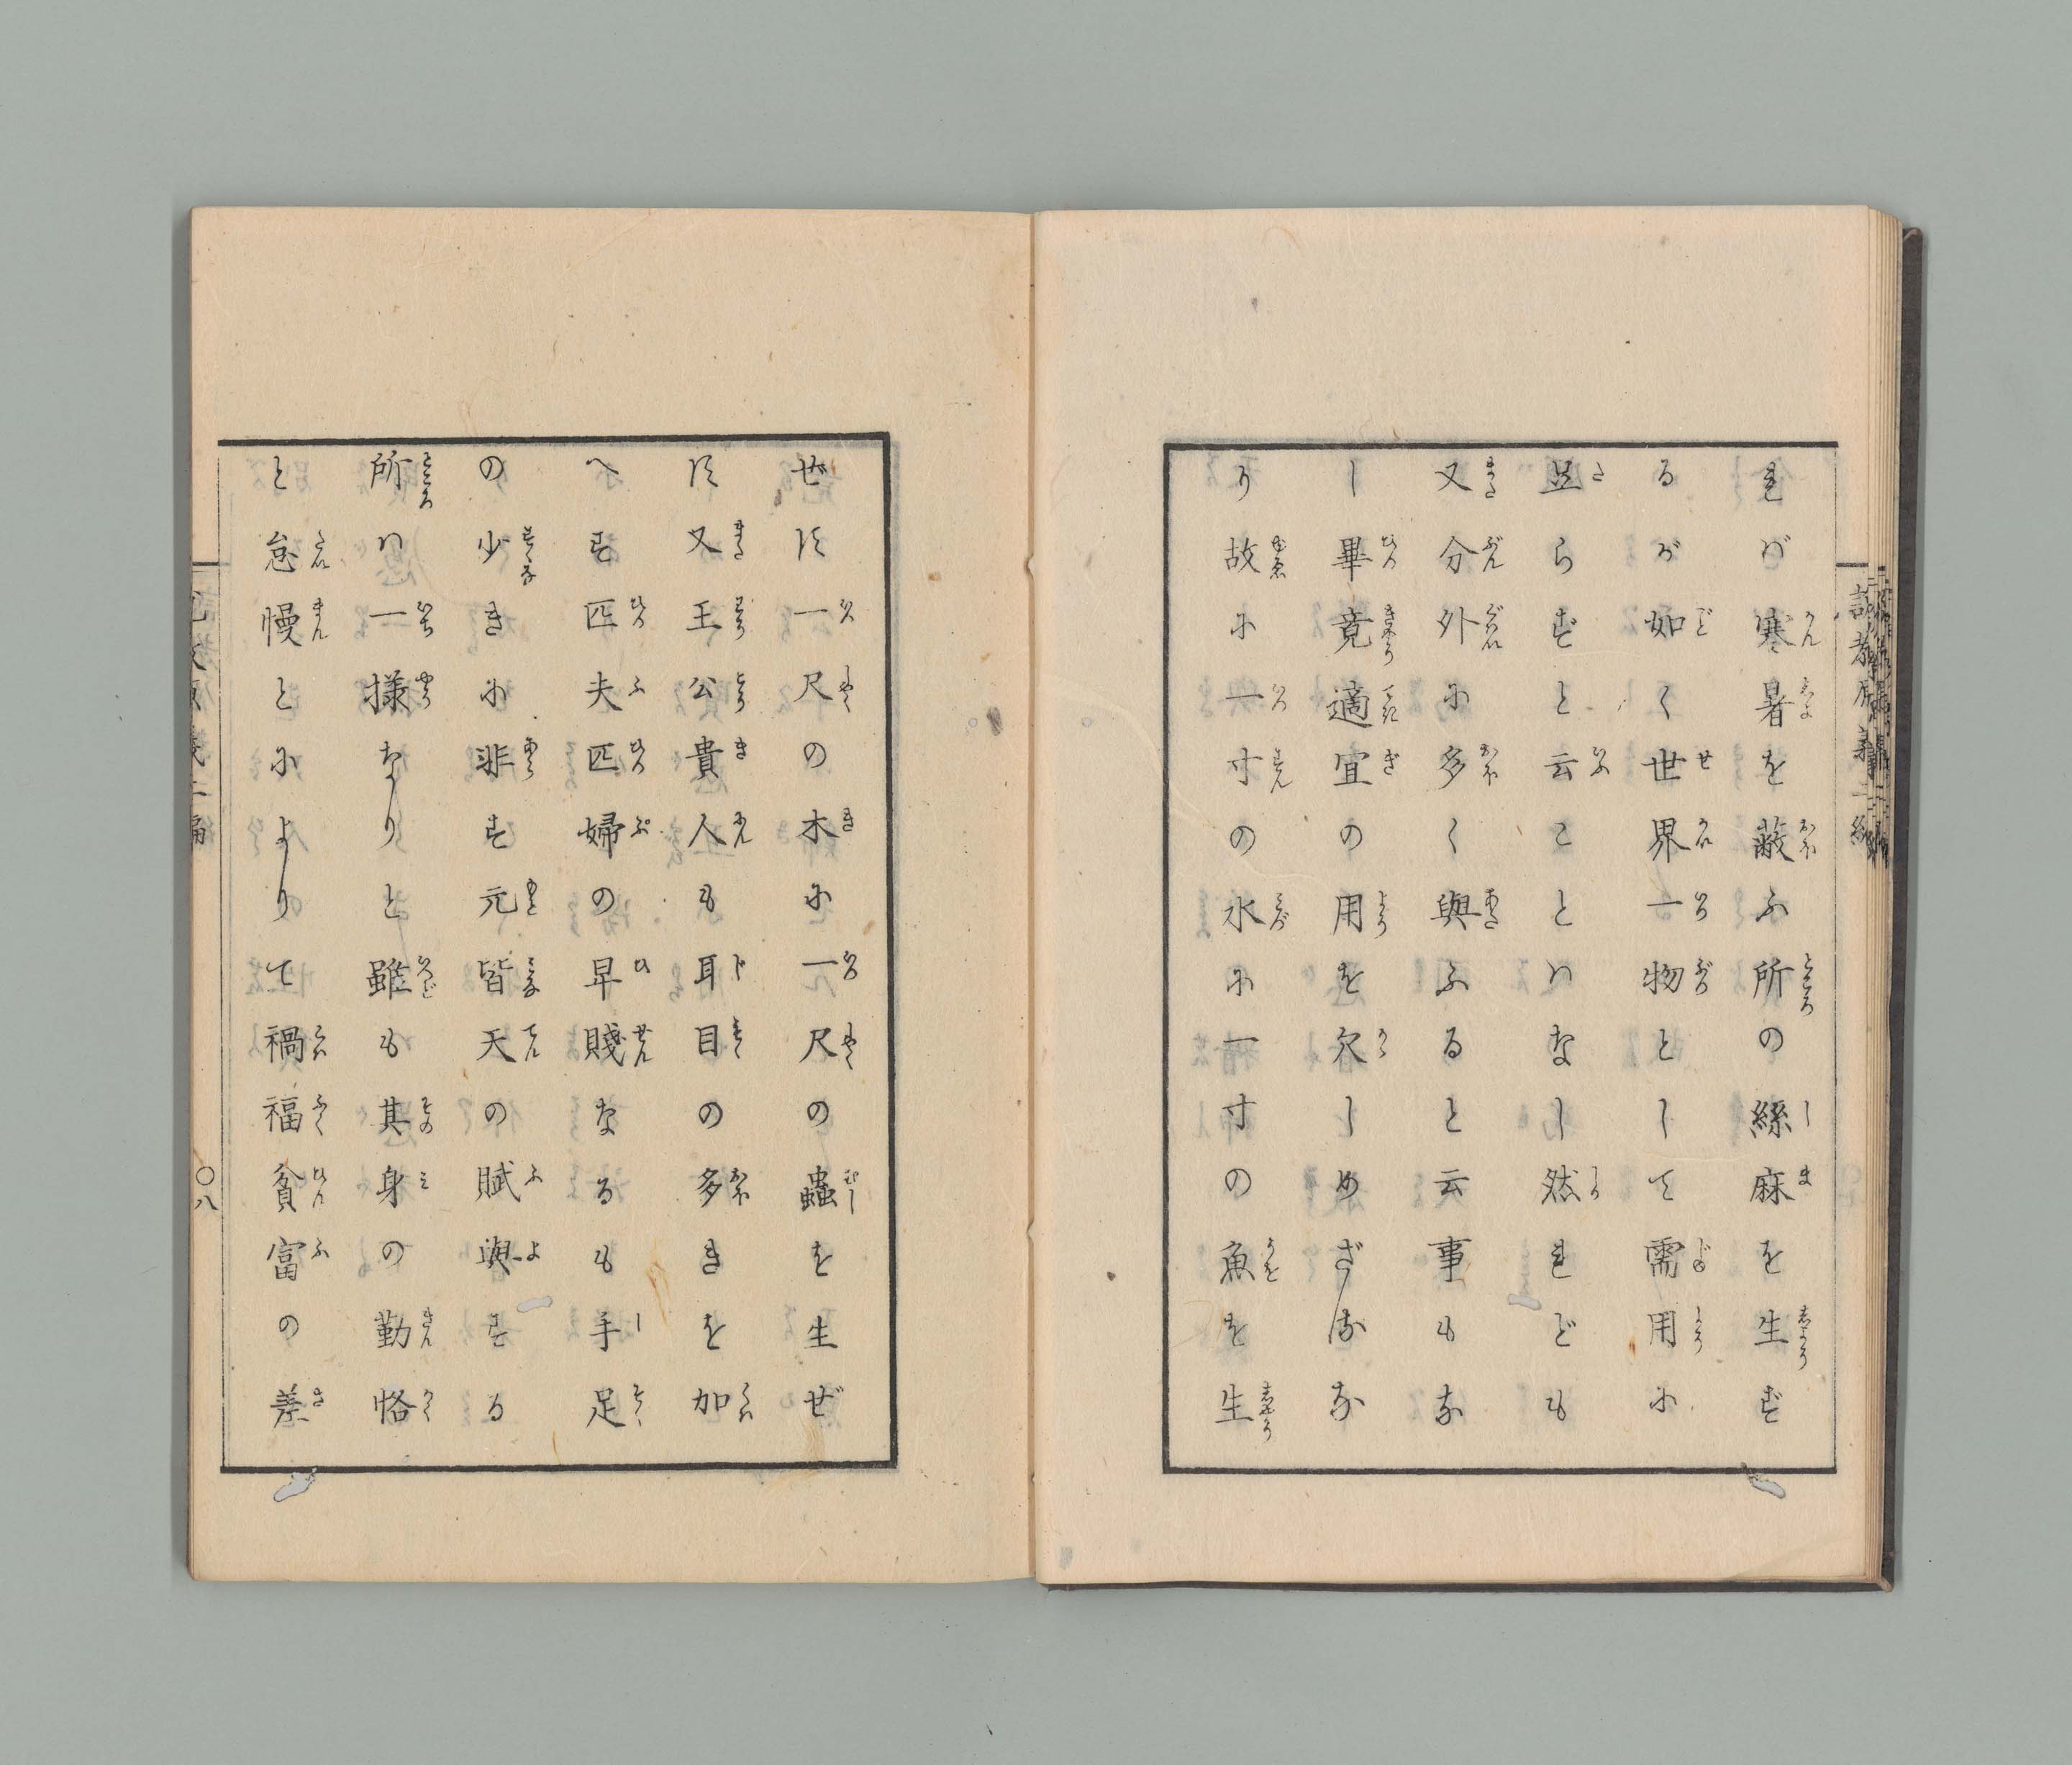 れば寒暑を蔽ふ所の絲麻を生ず
るが如く世界一物として需用に
足らずと云ことハなし然れども
又分外に多く與ふると云事もな
し畢竟適宜の用を欠しめざるな
り故に一寸の水に一寸の魚を生
ぜず一尺の木に一尺の蟲を生ぜ
ず又王公貴人も耳目の多きを加
へず匹夫匹婦の卑賤なるも手足
の少きに非ず元皆天の賦與する
所ハ一様なりと雖も其身の勤恪
と怠慢とによりて禍福貧富の差
〇八